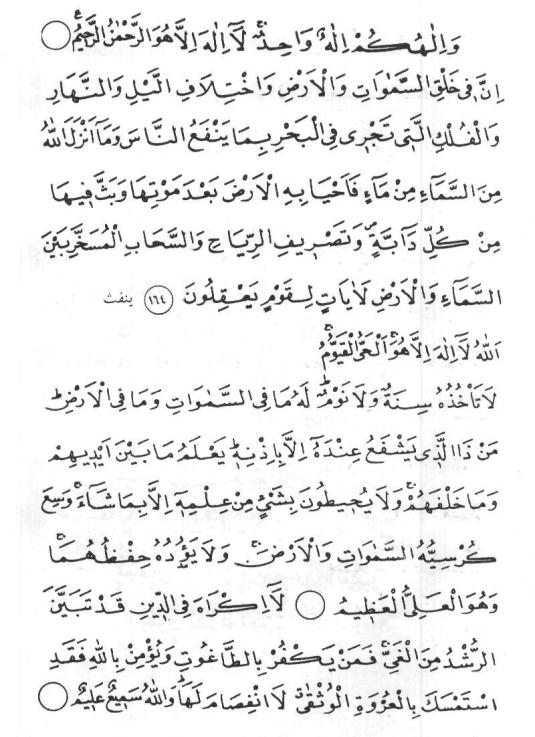 وَاِلٰهُكُمْ اِلٰهٌ وَاحِدٌۚ لَٓا اِلٰهَ اِلَّا هُوَ الرَّحْمٰنُ الرَّحٖيمُ
اِنَّ فٖي خَلْقِ السَّمٰوَاتِ وَالْاَرْضِ وَاخْتِلَافِ الَّيْلِ وَالنَّهَارِ
وَالْفُلْكِ الَّتٖي تَجْرٖي فِي الْبَحْرِ بِمَا يَنْفَعُ النَّاسَ وَمَٓا اَنْزَلَ اللّٰهُ
مِنَ السَّمَٓاءِ مِنْ مَٓاءٍ فَاَحْيَا بِهِ الْاَرْضَ بَعْدَ مَوْتِهَا وَبَثَّ فٖيهَا
مِنْ كُلِّ دَٓابَّةٍۖ وَتَصْرٖيفِ الرِّيَاحِ وَالسَّحَابِ الْمُسَخَّرِ بَيْنَ
السَّمَٓاءِ وَالْاَرْضِ لَاٰيَاتٍ لِقَوْمٍ يَعْقِلُونَ ﴿١٦٤﴾ ينفث
اَللّٰهُ لَٓا اِلٰهَ اِلَّا هُوَۚ اَلْحَيُّ الْقَيُّومُۚ
لَا تَأْخُذُهُ سِنَةٌ وَلَا نَوْمٌؕ لَهُ مَا فِي السَّمٰوَاتِ وَمَا فِي الْاَرْضِؕ
مَنْ ذَا الَّذٖي يَشْفَعُ عِنْدَهُٓ اِلَّا بِاِذْنِهٖؕ يَعْلَمُ مَا بَيْنَ اَيْدٖيهِمْ
وَمَا خَلْفَهُمْۚ وَلَا يُحٖيطُونَ بِشَيْءٍ مِنْ عِلْمِهٖٓ اِلَّا بِمَا شَٓاءَۚ وَسِعَ
كُرْسِيُّهُ السَّمٰوَاتِ وَالْاَرْضَۚ وَلَا يَؤُدُهُ حِفْظُهُمَاۚ
وَهُوَ الْعَلِيُّ الْعَظٖيمُ لَٓا اِكْرَاهَ فِي الدّٖينِ قَدْ تَبَيَّنَ
الرُّشْدُ مِنَ الْغَيِّۚ فَمَنْ يَكْفُرْ بِالطَّاغُوتِ وَيُؤْمِنْ بِاللّٰهِ فَقَدِ
اسْتَمْسَكَ بِالْعُرْوَةِ الْوُثْقٰىۗ لَا انْفِصَامَ لَهَاؕ وَاللّٰهُ سَمٖيعٌ عَلٖيمٌ